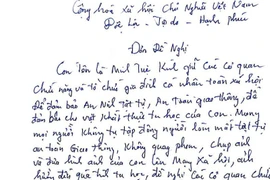 Cộng hoà xã hội Chủ Nghĩa Việt Nam
Độc Lập - Tự do - Hạnh phúc
Đơn Đề Nghị
Con Tên là Minh Tuệ Kính gửi Các Cơ quan
chức năng và tổ chức gia đình cá nhân toàn xã hội
Để đảm bảo An Ninh trật tự, An Toàn giao thông, để
đảm bảo cho việc khất thực tu học của con. Mong
mọi người Không tụ tập đông người làm mất trật tự
an toàn Giao thông, Không quay phim, chụp ảnh
và đưa hình ảnh của con lên Mạng Xã hội, ảnh
hưởng đến quá trình tu học, đề nghị Các Cơ quan chức